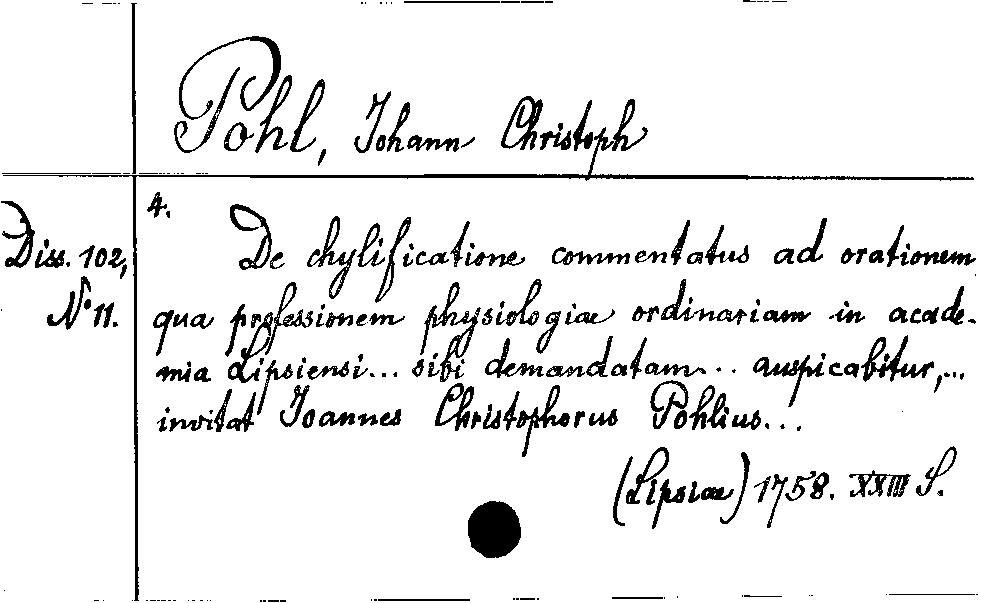 Pohl, Johann Christoph
4.
Diss. 102,
No 11.
De chylificatione commentatus ad orationem
qua professionem physiologiae ordinariam in acade-
mia Lipsiensi... sibi demandatam... auspicabitur,...
invitat Joannes Christophorus Pohlius...
(Lipsiae) 1758. XXIII S.